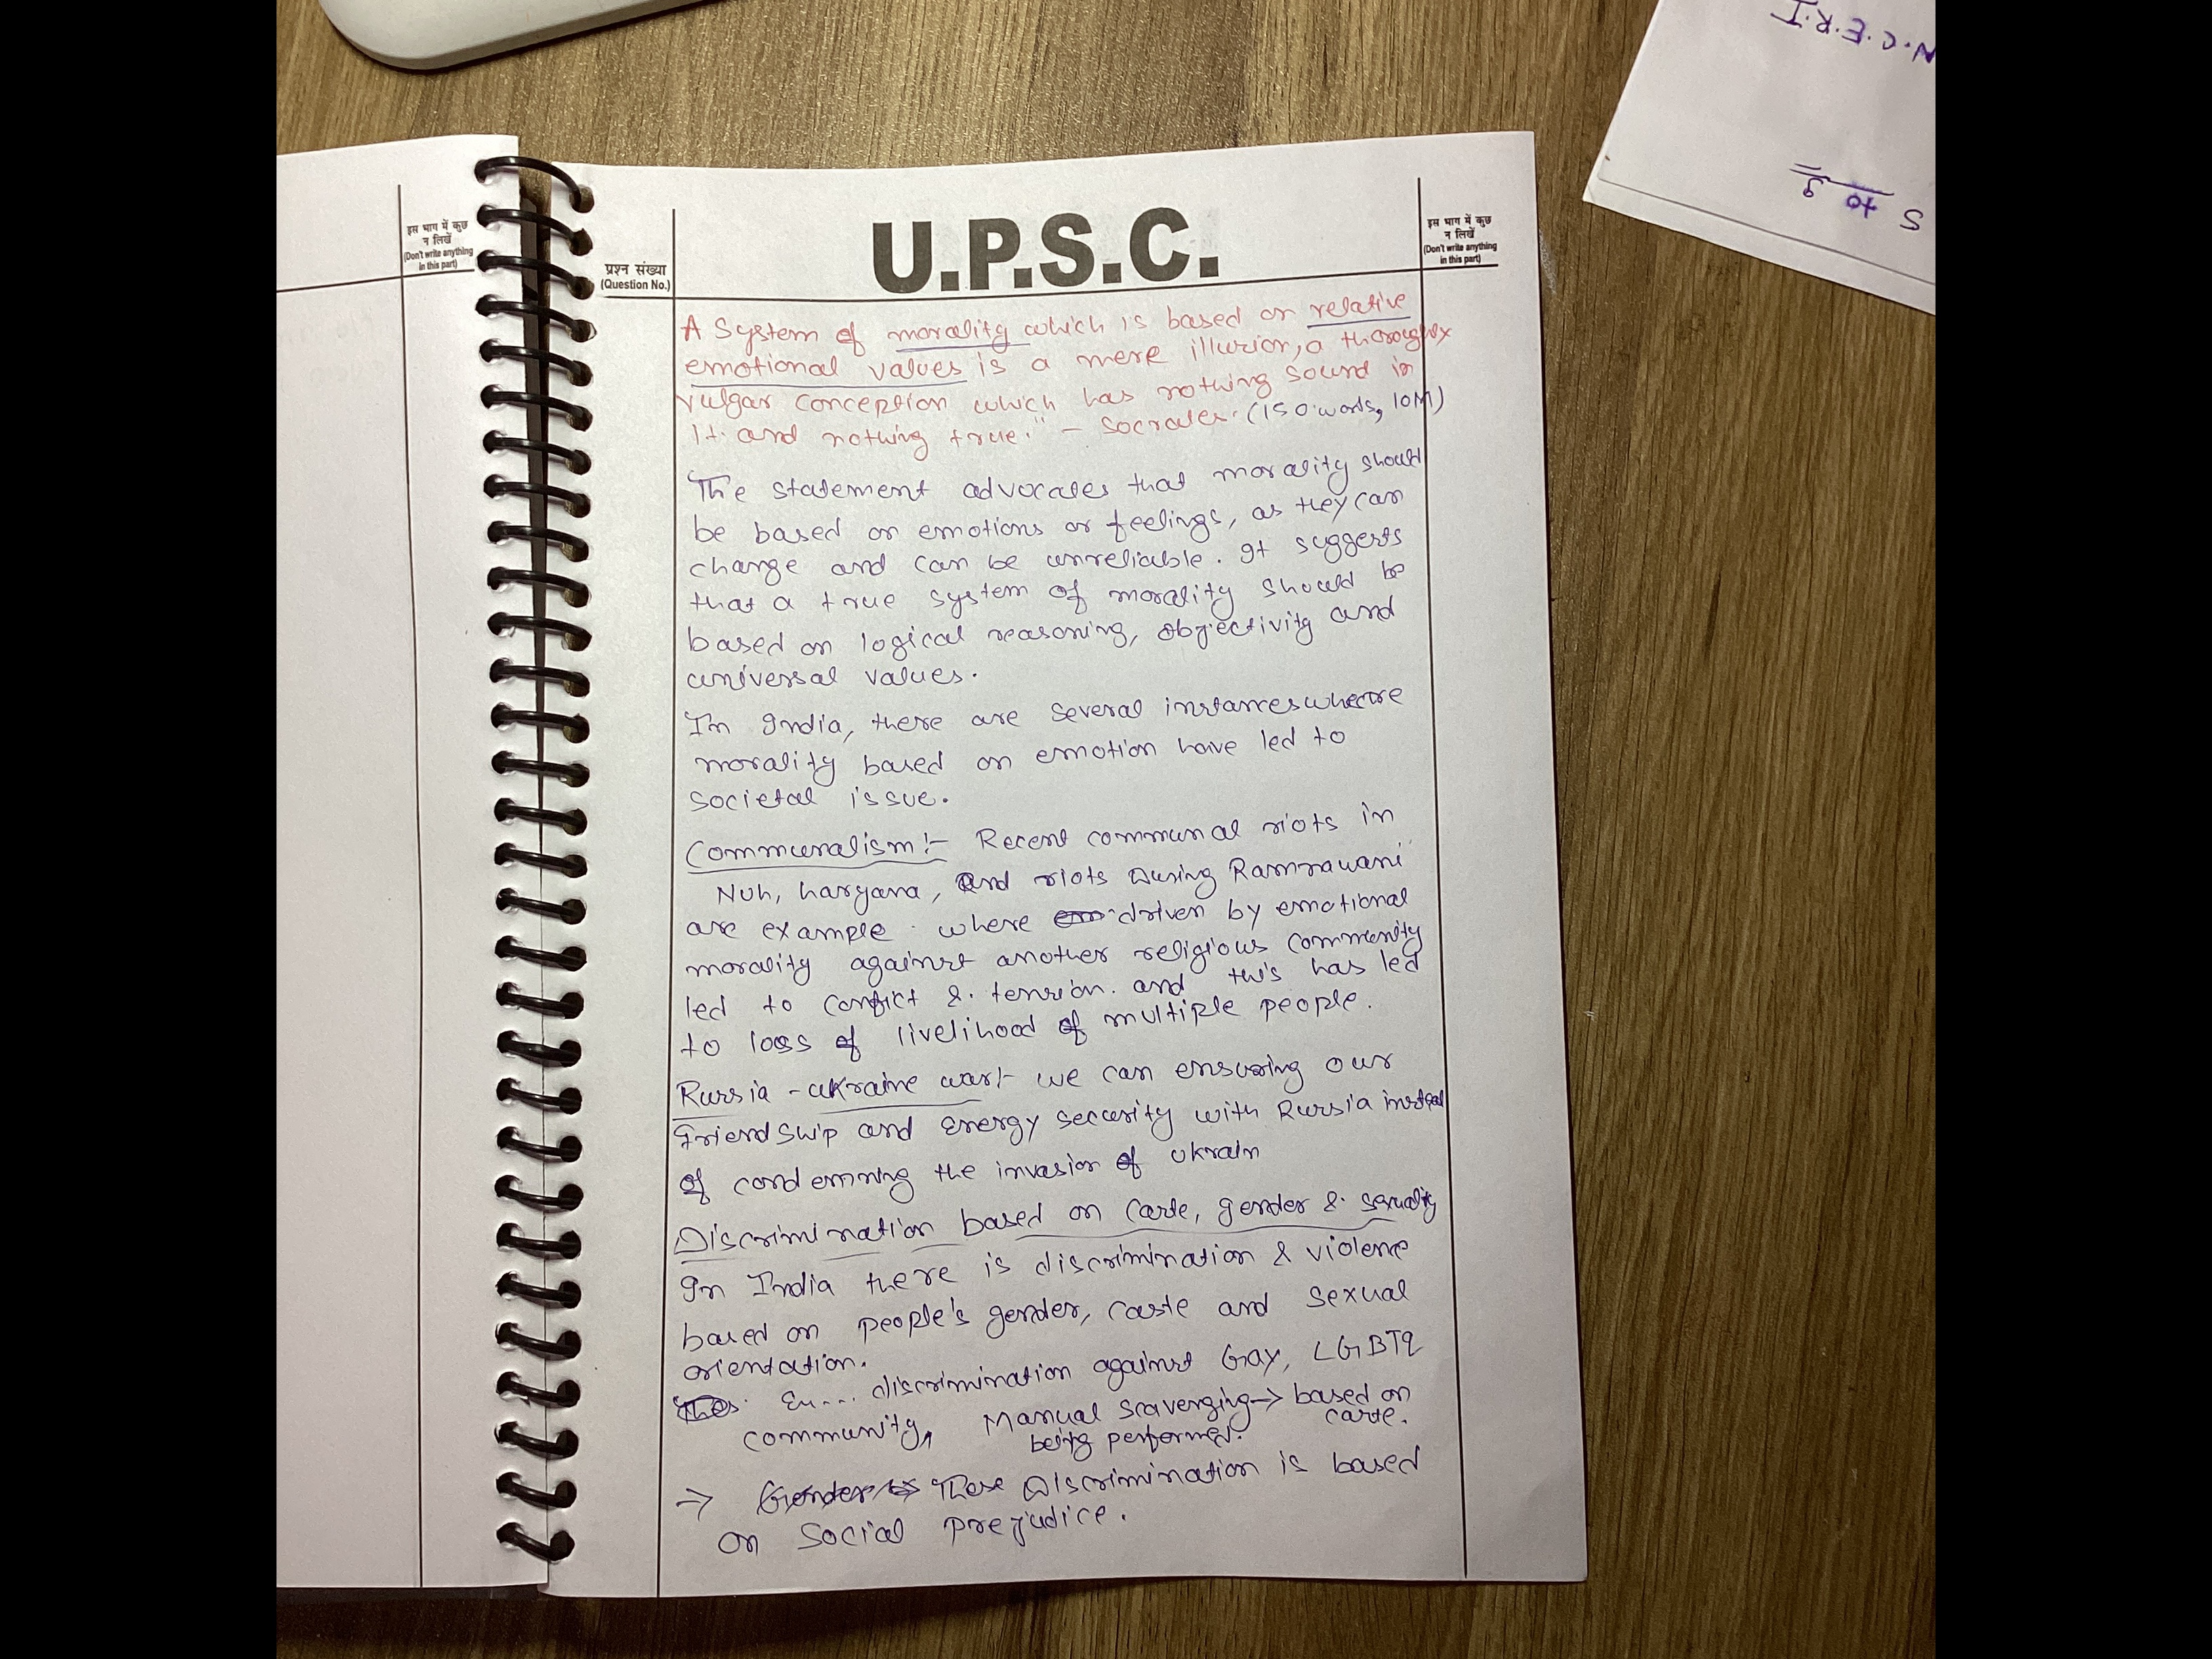 N.C.E.R.T
5 to 9
इस भाग में कुछ
न लिखें
(Don't write anything
in this part)
प्रश्न संख्या
(Question No.)
U.P.S.C.
इस भाग में कुछ
न लिखें
(Don't write anything
in this part)
A System of morality which is based on relative
emotional values is a mere illusion, a thoroughly
vulgar conception which has nothing sound in
it and nothing true." - Socrates. (150 words, 10M)
The statement advocates that morality should
be based on emotions or feelings, as they can
change and can be unreliable. It suggests
that a true system of morality should be
based on logical reasoning, objectivity and
universal values.
In India, there are several instances where
morality based on emotion have led to
societal issue.
Communalism:- Recent communal riots in
Nuh, haryana, and riots During Ramnawami
are example where driven by emotional
morality against another religious community
led to conflict & tension. and this has led
to loss of livelihood of multiple people.
Russia - ukraine war:- we can ensuring our
friendship and energy security with Russia instead
of condemning the invasion of Ukrain
Discrimination based on caste, gender & sexuality
In India there is discrimination & violence
based on people's gender, caste and sexual
orientation.
Ex... discrimination against Gay, LGBTQ
community, Manual scavenging → based on
being performed. caste.
→ These Discrimination is based
on Social prejudice.